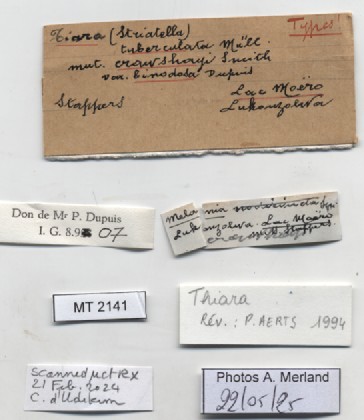 Types
Tiara (Striatella)
tuberculata Müll.
mut. crawshayi Smith
var. binodosa Dupuis
Stappers
Lac Moëro
Lukonzolwa
Don de Mr P. Dupuis
I. G. 8.9 07
Melania nodicincta
Lukonzolwa. Lac Moëro
Stappers.
MT 2141
Thiara
Rév.: P. AERTS 1994
Scanned μct RX
21 Feb. 2024
C. d'Udekem
Photos A. Merland
22/05/25